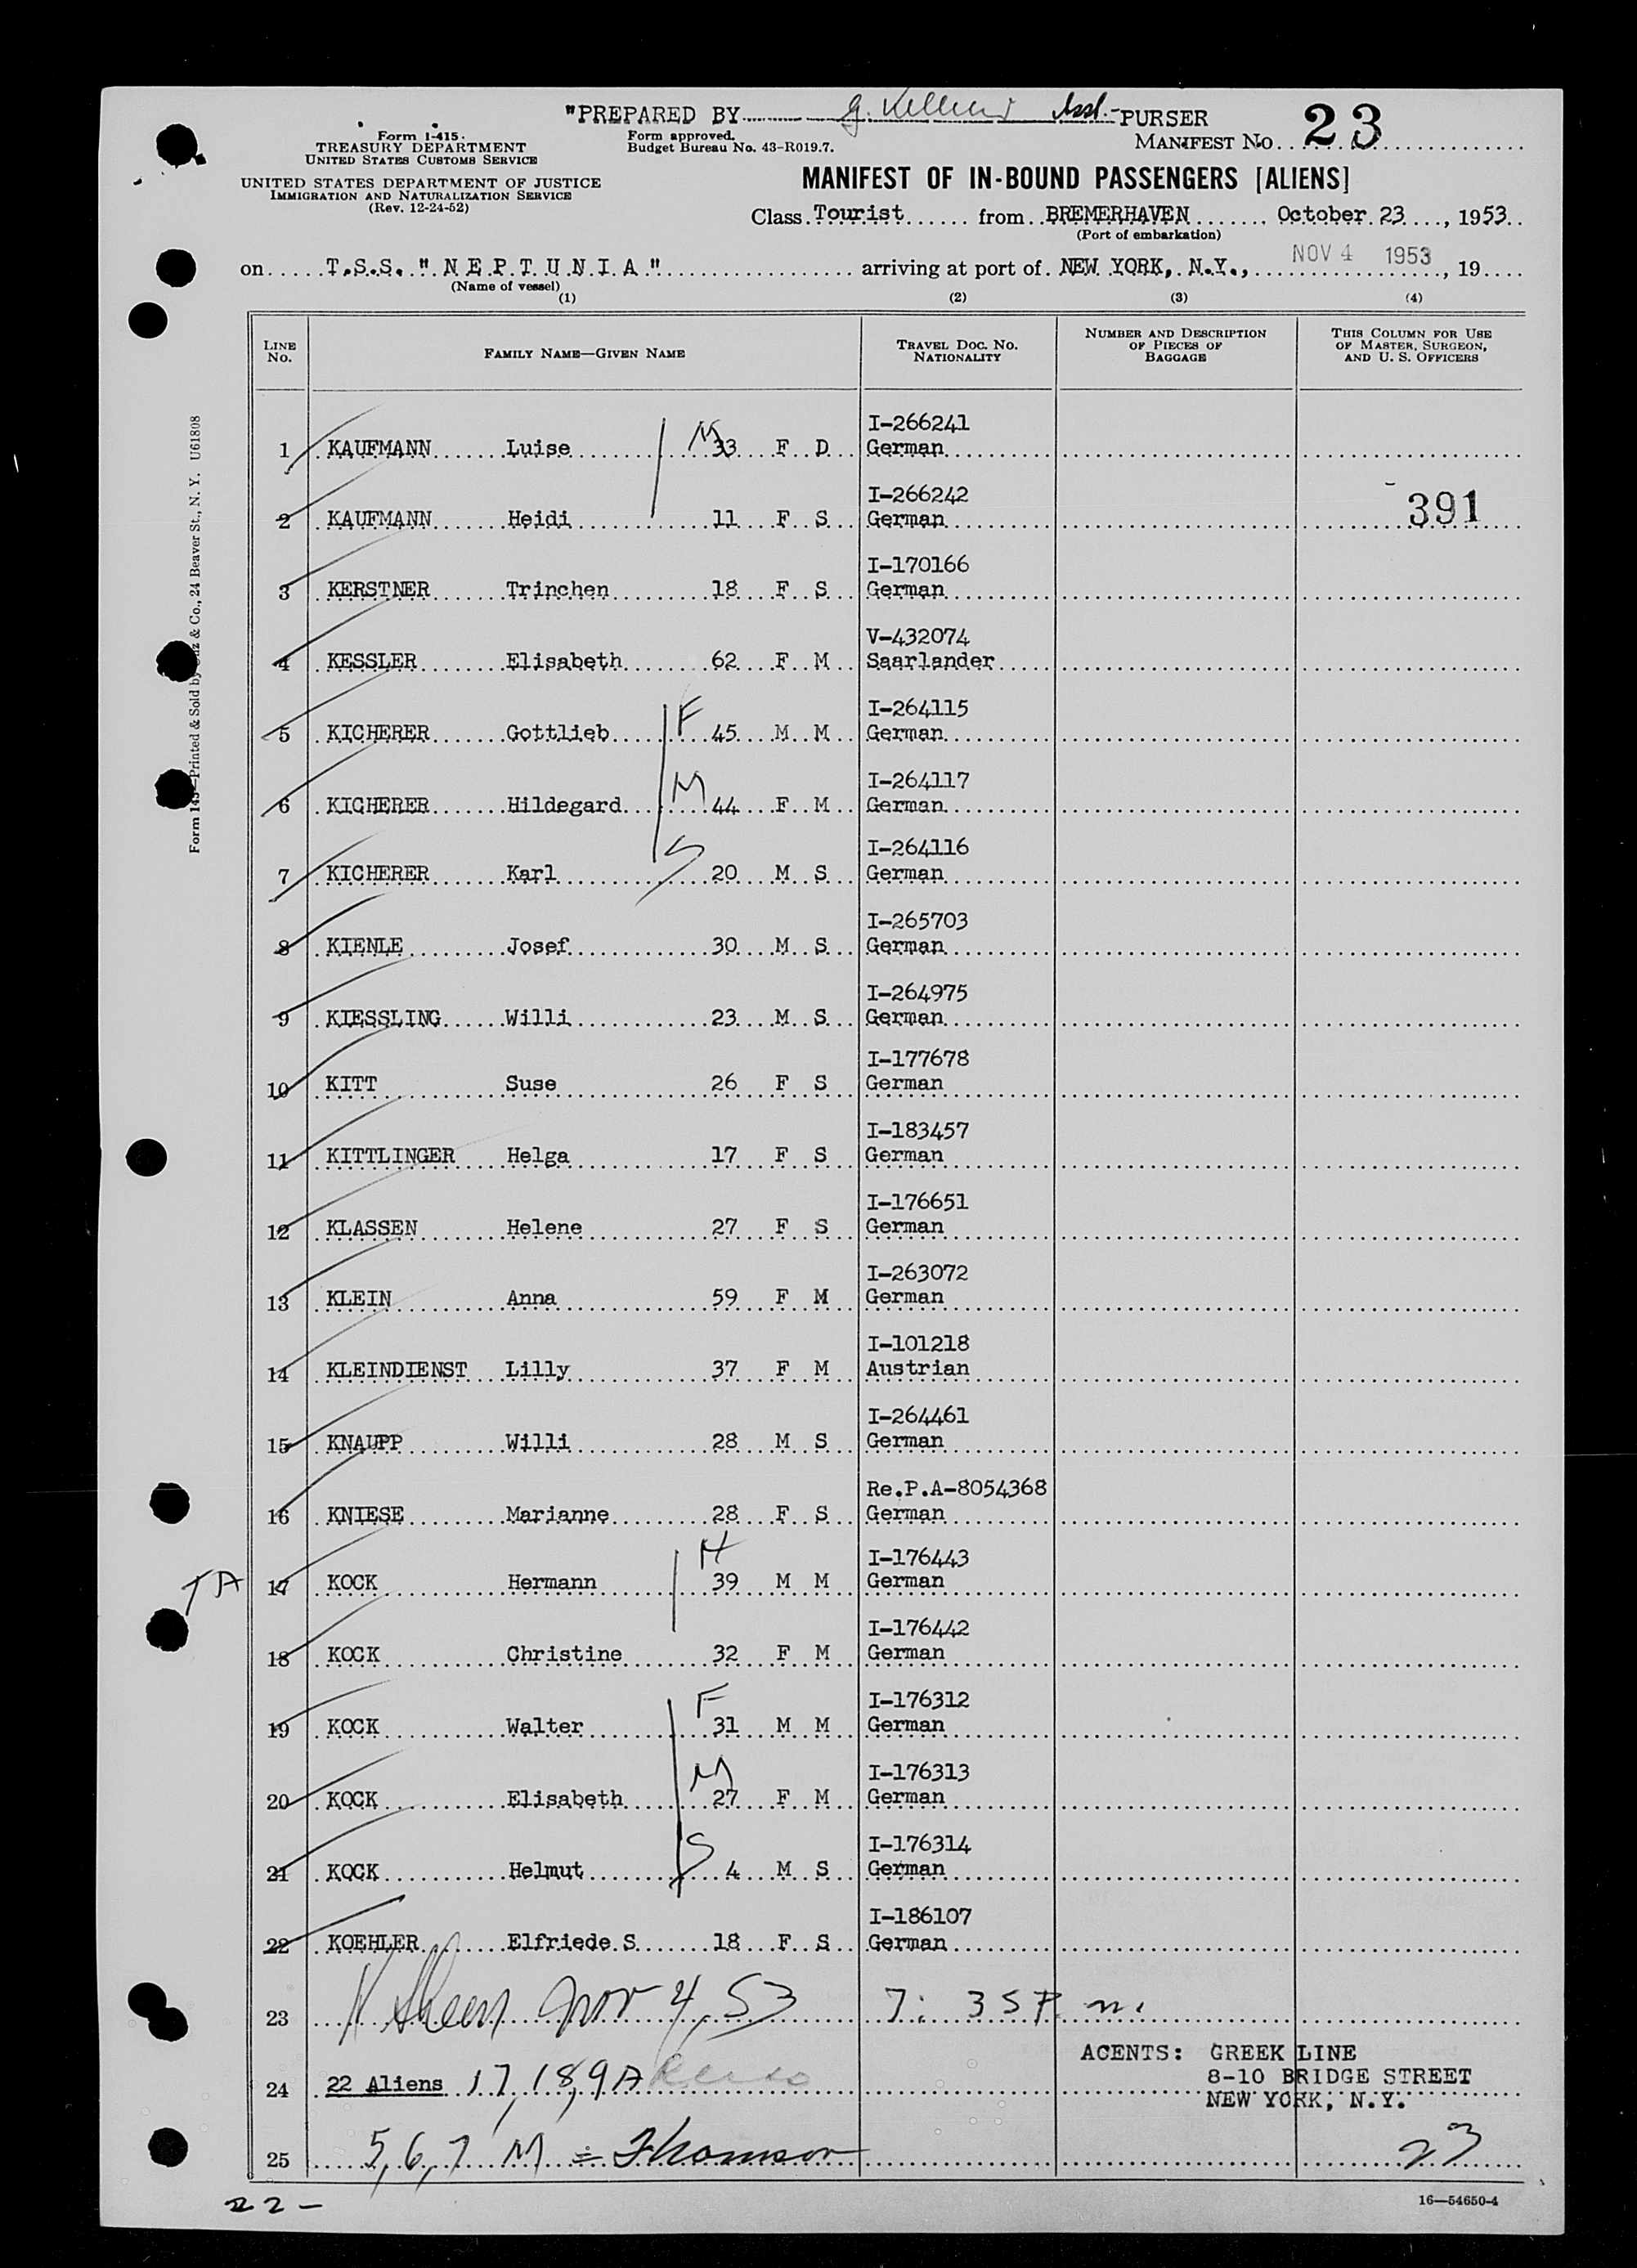 "PREPARED BY Asst.-PURSER
Form I-415.
TREASURY DEPARTMENT
UNITED STATES CUSTOMS SERVICE
Form approved.
Budget Bureau No. 43-R019.7.
MANIFEST NO. 23
UNITED STATES DEPARTMENT OF JUSTICE
IMMIGRATION AND NATURALIZATION SERVICE
(Rev. 12-24-52)
MANIFEST OF IN-BOUND PASSENGERS [ALIENS]
Class Tourist from BREMERHAVEN October 23, 1953
(Port of embarkation)
on T.S.S. "NEPTUNIA" arriving at port of NEW YORK, N.Y., NOV 4 1953, 19
(Name of vessel)
(1) (2) (3) (4)
LINE NO. FAMILY NAME—GIVEN NAME TRAVEL DOC. NO. NATIONALITY NUMBER AND DESCRIPTION OF PIECES OF BAGGAGE THIS COLUMN FOR USE OF MASTER, SURGEON, AND U. S. OFFICERS
I-266241
1 KAUFMANN Luise M 33 F D German
I-266242
2 KAUFMANN Heidi 11 F S German 391
I-170166
3 KERSTNER Trinchen 18 F S German
V-432074
4 KESSLER Elisabeth 62 F M Saarlander
I-264115
5 KICHERER Gottlieb F 45 M M German
I-264117
6 KICHERER Hildegard M 44 F M German
I-264116
7 KICHERER Karl S 20 M S German
I-265703
8 KIENLE Josef 30 M S German
I-264975
9 KIESSLING Willi 23 M S German
I-177678
10 KITT Suse 26 F S German
I-183457
11 KITTLINGER Helga 17 F S German
I-176651
12 KLASSEN Helene 27 F S German
I-263072
13 KLEIN Anna 59 F M German
I-101218
14 KLEINDIENST Lilly 37 F M Austrian
I-264461
15 KNAUPP Willi 28 M S German
Re.P.A-8054368
16 KNIESE Marianne 28 F S German
I-176443
17 KOCK Hermann H 39 M M German
I-176442
18 KOCK Christine 32 F M German
I-176312
19 KOCK Walter F 31 M M German
I-176313
20 KOCK Elisabeth M 27 F M German
I-176314
21 KOCK Helmut S 4 M S German
I-186107
22 KOEHLER Elfriede S 18 F S German
23 Nov 4, 53 7:35 P.m.
AGENTS: GREEK LINE
8-10 BRIDGE STREET
NEW YORK, N.Y.
24 22 Aliens 17, 18, 9A
25 5, 6, 7 M = Thomson 23
22-
16—54650-4
Form 145—Printed & Sold by & Co., 24 Beaver St., N. Y. U61808